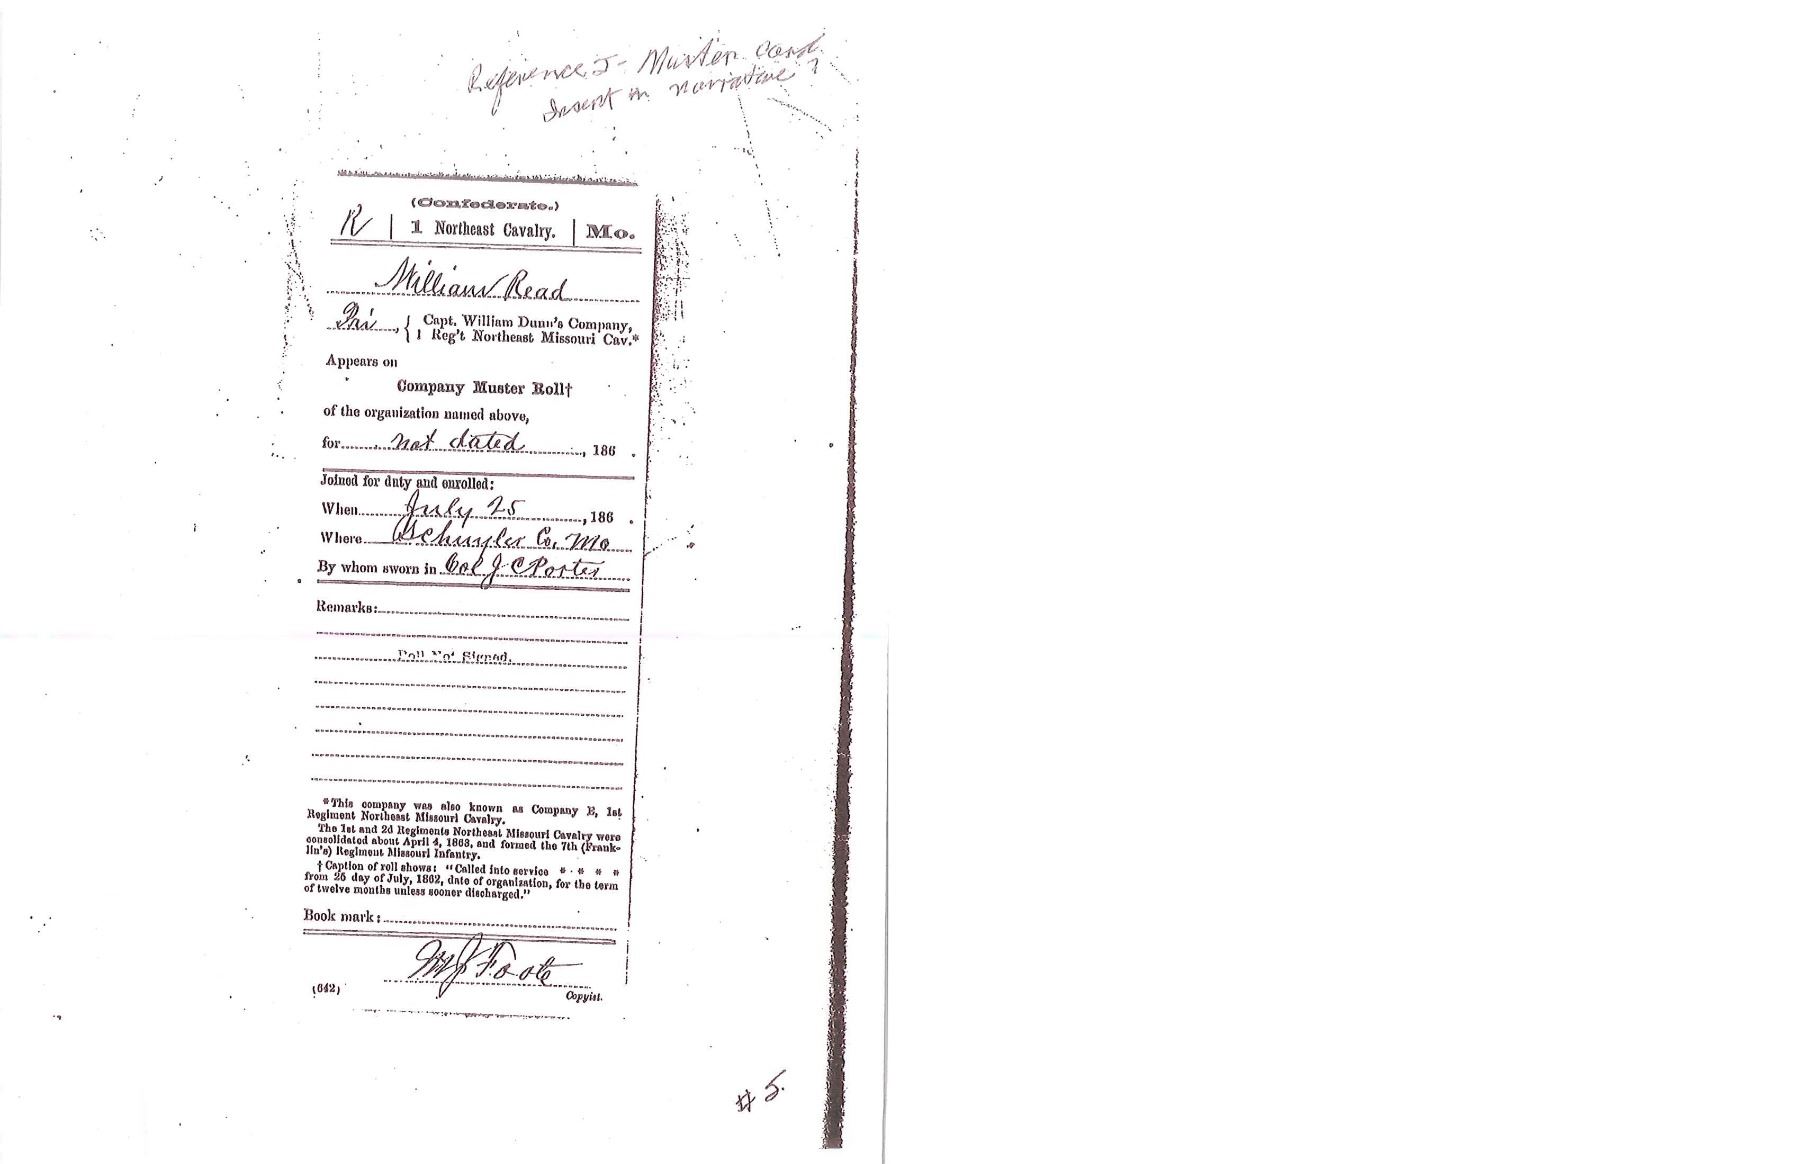 Reference 5 - Muster Card.
Insert in narrative?
(Confederate.)
R | 1 Northeast Cavalry. | Mo.
William Read
Pri, { Capt. William Dunn's Company,
1 Reg't Northeast Missouri Cav.*
Appears on
Company Muster Roll†
of the organization named above,
for not dated, 186 .
Joined for duty and enrolled:
When July 25, 186 .
Where Schuyler Co. Mo
By whom sworn in Col J C Porter
Remarks:
Roll Not Signed.
*This company was also known as Company E, 1st
Regiment Northeast Missouri Cavalry.
The 1st and 2d Regiments Northeast Missouri Cavalry were
consolidated about April 4, 1863, and formed the 7th (Frank-
lin's) Regiment Missouri Infantry.
† Caption of roll shows: "Called into service * * * *
from 25 day of July, 1862, date of organization, for the term
of twelve months unless sooner discharged."
Book mark:
Foote
(642)
Copyist.
# 5.